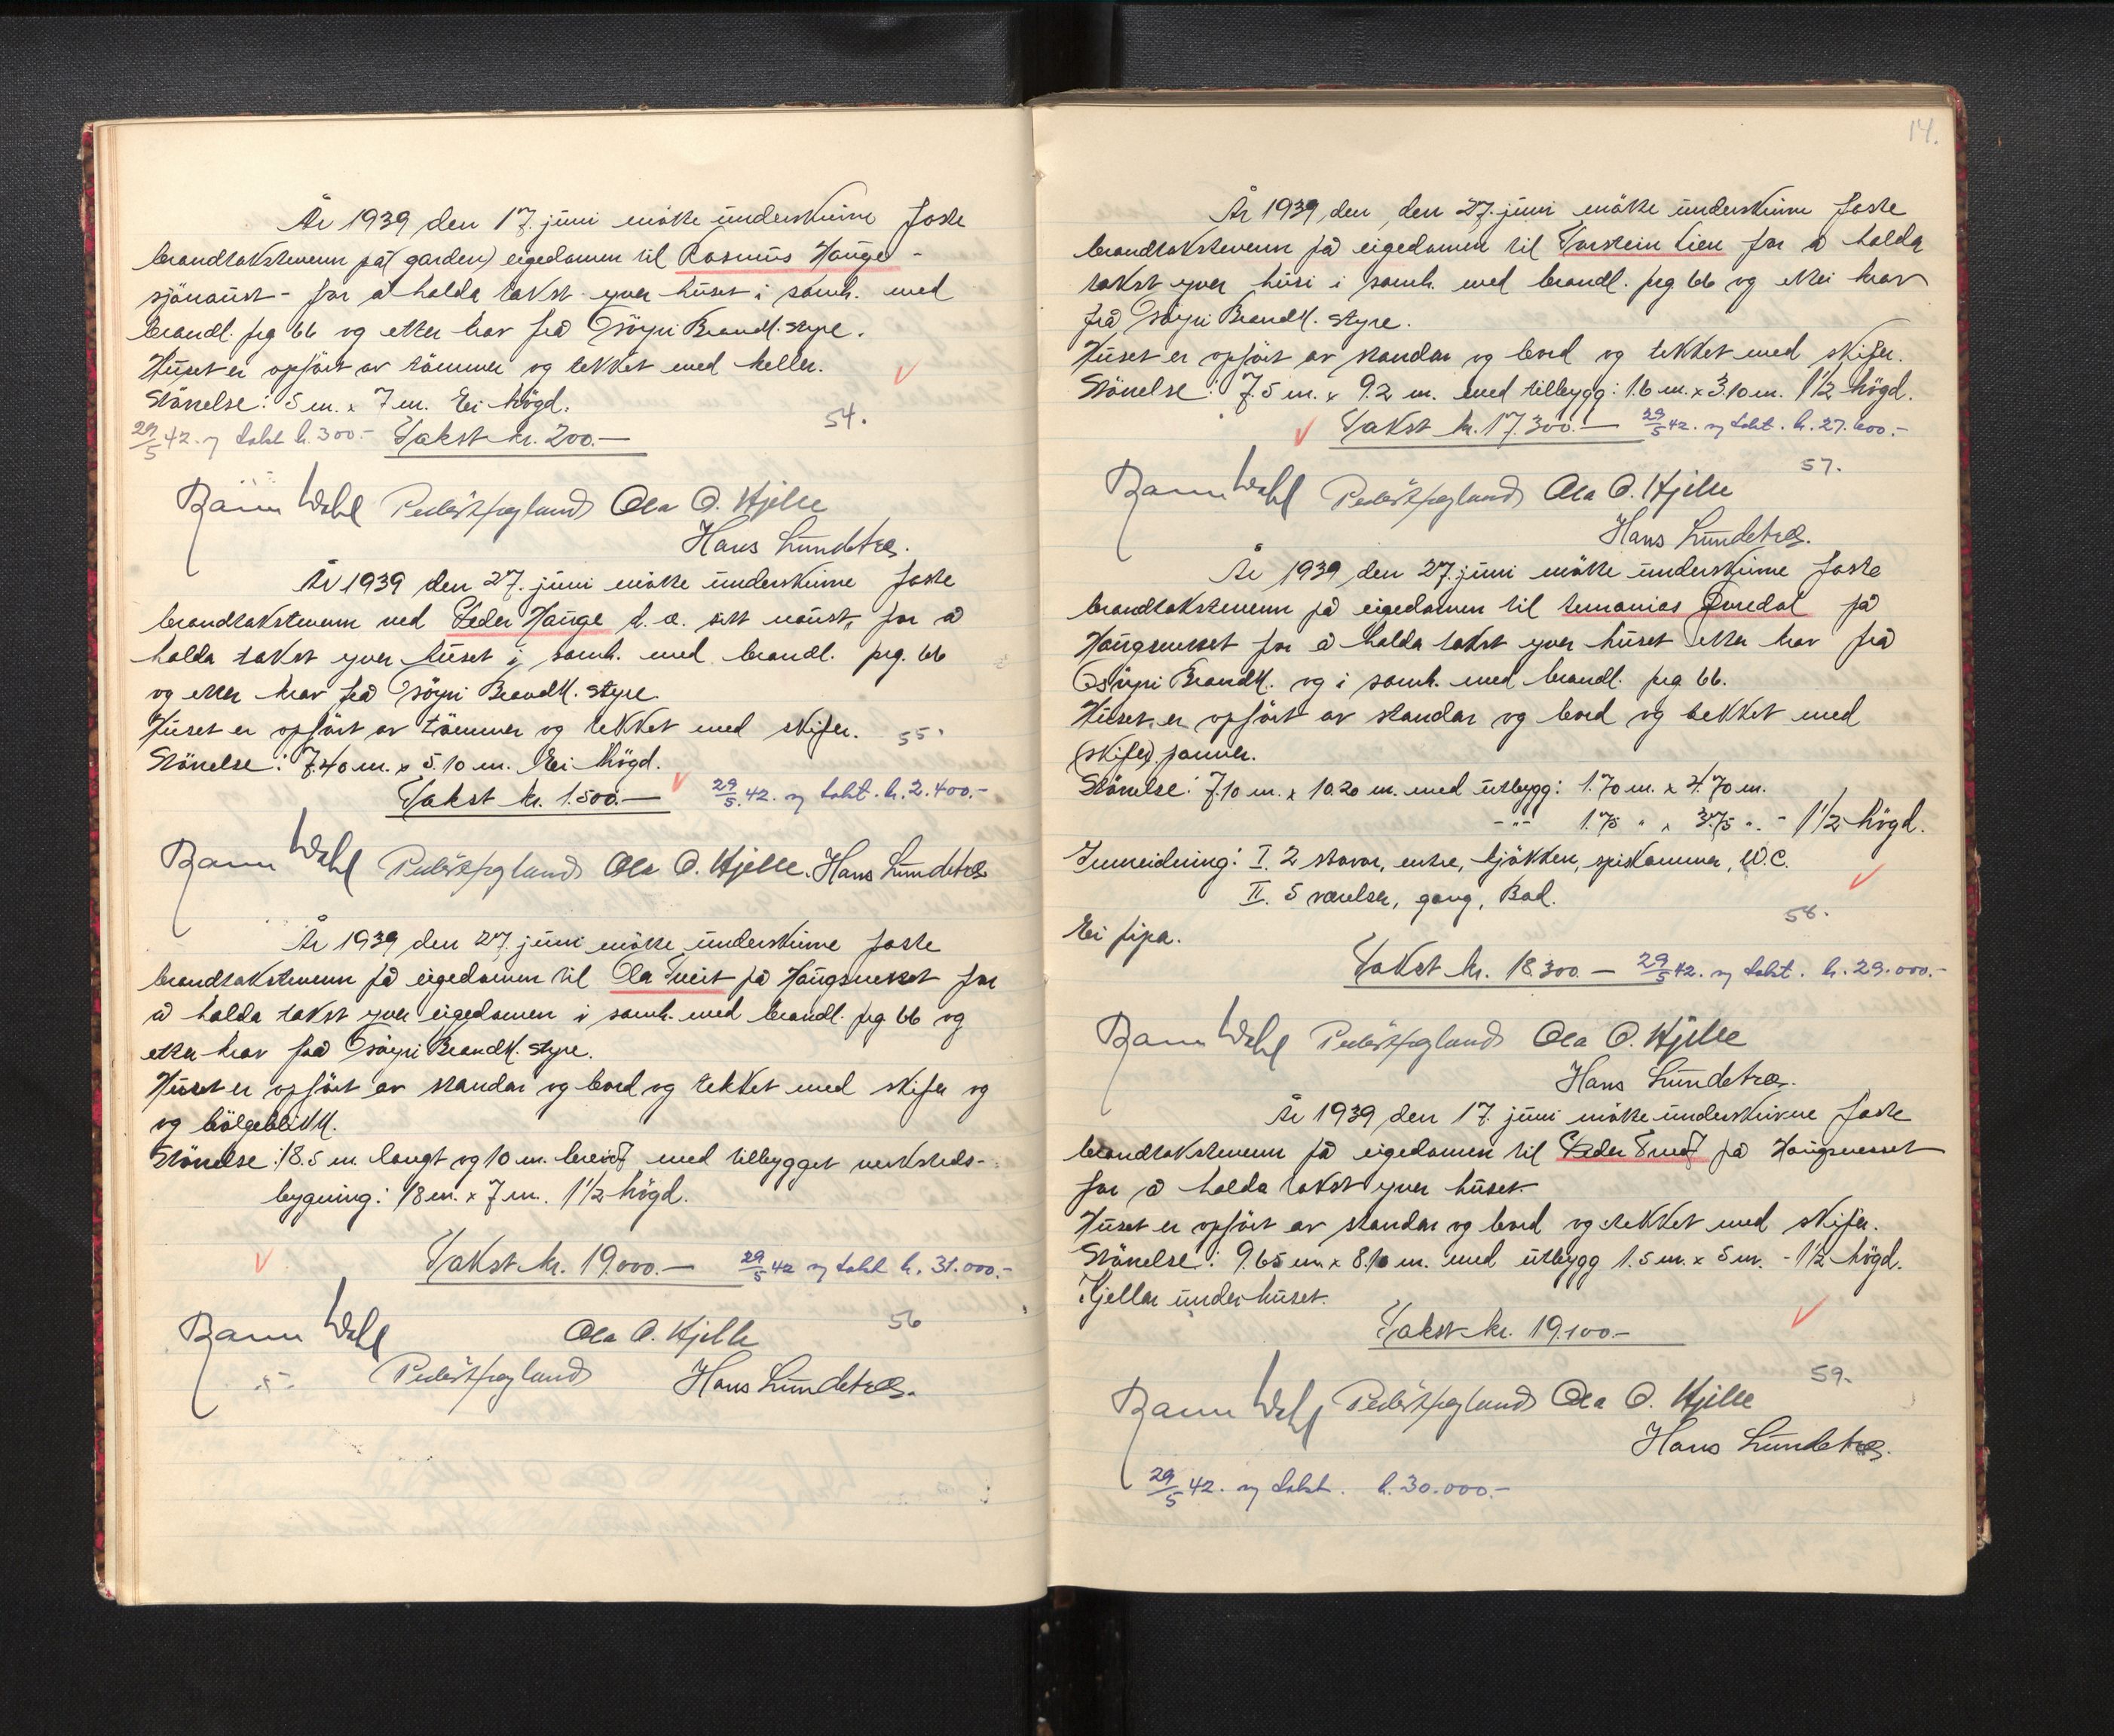 År 1939 den 17. juni møtte underskrivne faste
brandtakstmenn på (garden) eigedomen til Rasmus Hauge -
sjönaust - for å halda takst yver huset i samh. med
brandl. prg 66 og etter krav frå Böyri Brandk. styre.
Huset er opfört av tömmer og tekket med heller.
Störrelse: 5 m. x 7 m. Ei högd.
54.
29/5 42. ny takst kr. 300.- Takst kr. 200.-
Wahl Ola O. Hjelle
Hans Lundetræ.
År 1939 den 27. juni møtte underskrivne faste
brandtakstmenn ved Peder Hauge t. a. sitt naust, for å
halda takst yver huset i samh. med brandl. prg. 66
og etter krav frå Böyri Brandk. styre
Huset er opfört av tömmer og tekket med skifer. 55.
Störrelse: 7.40 m. x 5.10 m. Ei högd.
Takst kr. 1.500.- 29/5 42. ny takst. kr. 2.400.-
Wahl Ola O. Hjelle. Hans Lundetræ
År 1939 den 27. juni møtte underskrivne faste
brandtakstmenn på eigedomen til Ola Tveit på Haugsnesset for
å halda takst yver eigedomen i samh. med brandl. prg 66 og
etter krav frå Böyri Brandk. styre.
Huset er opfört av standar og bord og tekket med skifer og
og bölgeblikk.
Störrelse: 18.5 m. langt og 10 m. breidt med tilbygget verksteds-
bygning: 18 m. x 7 m. 1 1/2 högd.
Takst kr. 19.000.- 29/5 42 ny takst kr. 31.000.-
56
Wahl Ola O. Hjelle
Hans Lundetræ.
14.
År 1939, den, den 27. juni møtte underskrivne faste
brandtakstmenn på eigedomen til Torstein Lien for å halda
takst yver husi i samh. med brandl. prg 66 og etter krav
frå Böyri Brandk. styre.
Huset er opfört av standar og bord og tekket med skifer.
Störrelse: 7.5 m. x 9.2 m. med tilbygg: 1.6 m. x 3.10 m. 1 1/2 högd.
Takst kr. 17.300.- 29/5 42. ny takst. kr. 27.600.-
57.
Wahl Ola O. Hjelle
Hans Lundetræ.
År 1939 den 27. juni møtte underskrivne faste
brandtakstmenn på eigedomen til på
Haugsnesset for å halda takst yver huset etter krav frå
Böyri Brandk. og i samh. med brandl. prg 66.
Huset er opfört av standar og bord og tekket med
(skifer) panner.
Störrelse: 7.10 m. x 10.20 m. med utbygg: 1.70 m. x 4.70 m.
-"- 1.75 " x 3.75 ". - 1 1/2 högd.
Innreidning: I. 2 stovor, entre, kjökken, spiskammer, W.C.
II. 5 værelser, gang, Bad.
58.
Ei pipa.
Takst kr. 18.300.- 29/5 42. ny takst. kr. 29.000.-
Wahl Ola O. Hjelle
Hans Lundetræ.
År 1939 den 17. juni møtte underskrivne faste
brandtakstmenn på eigedomen til Peder Tveit på Haugsnesset
for å halda takst yver huset.
Huset er opfört av standar og bord og tekket med skifer.
Störrelse: 9.65 m. x 8.10 m. med utbygg 1.5 m. x 5 m. - 1 1/2 högd.
Kjellar under huset.
Takst kr. 19.100.-
59.
Wahl Ola O. Hjelle
Hans Lundetræ.
29/5 42. ny takst. kr. 30.000.-